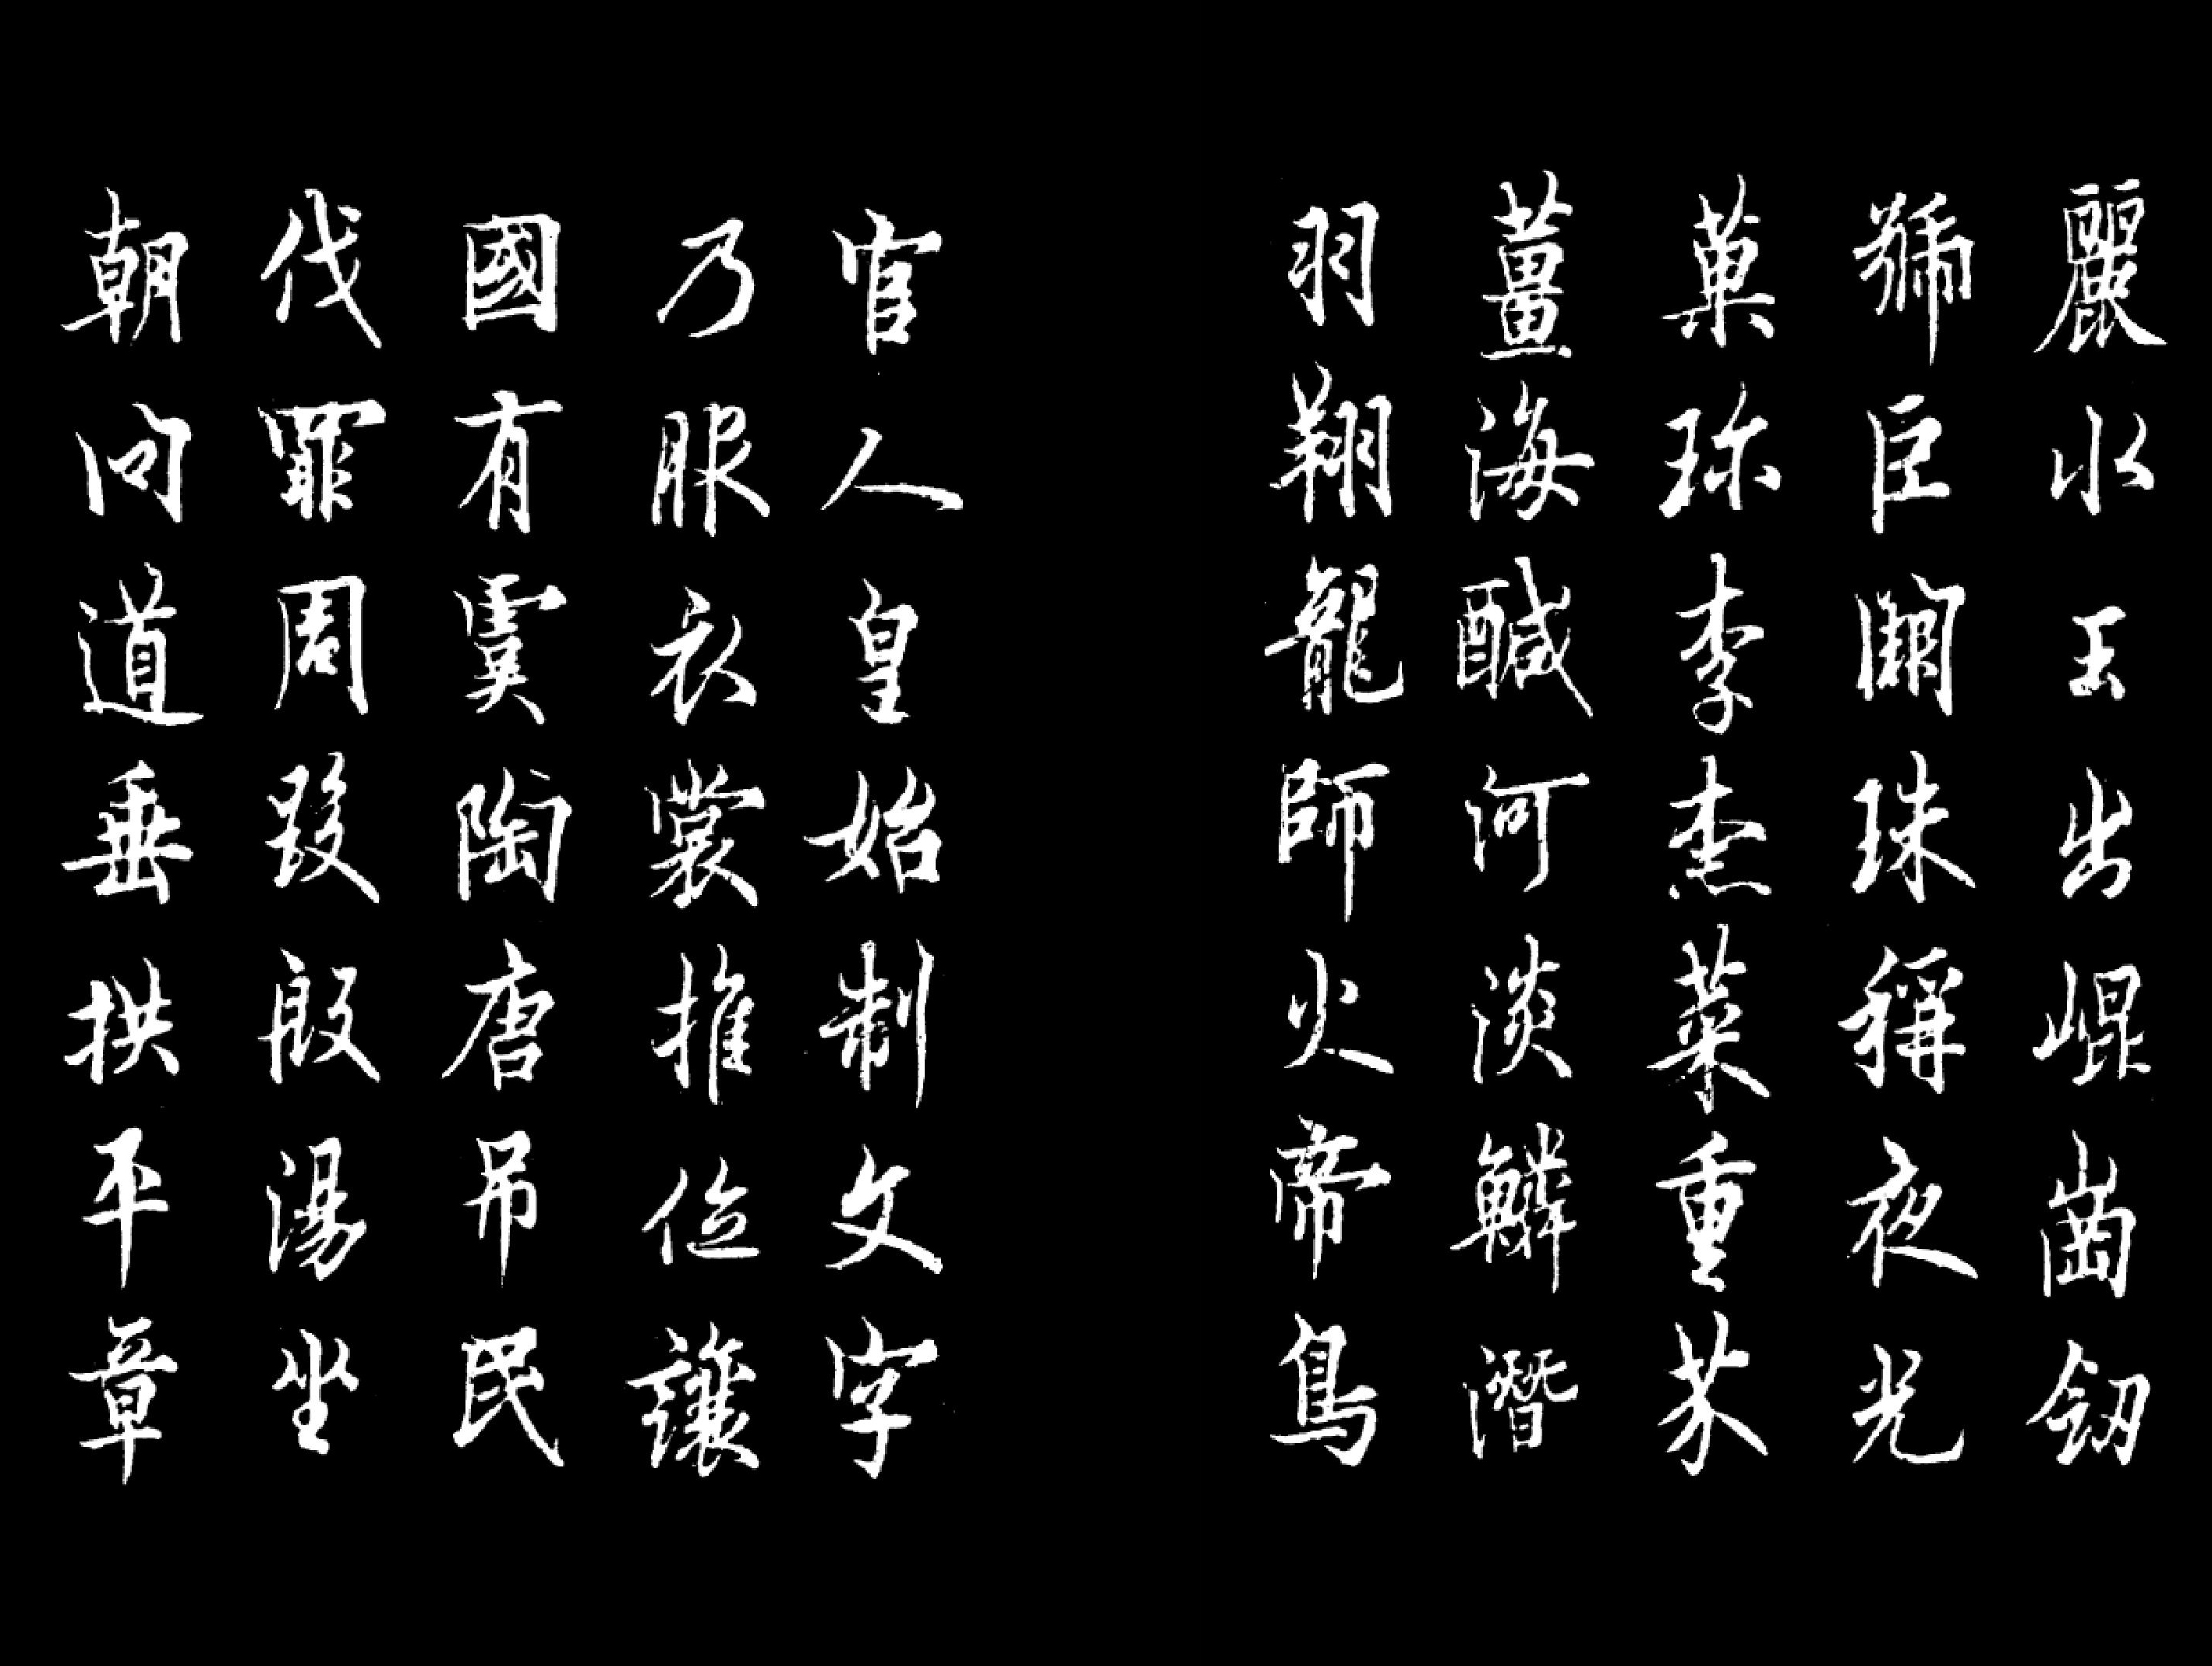 麗水玉出崐崗劒
號巨闕珠稱夜光
菓珎李柰菜重芥
薑海醎河淡鱗潛
羽翔龍師火帝鳥
官人皇始制文字
乃服衣裳推位讓
國有虞陶唐吊民
伐罪周發殷湯坐
朝問道垂拱平章